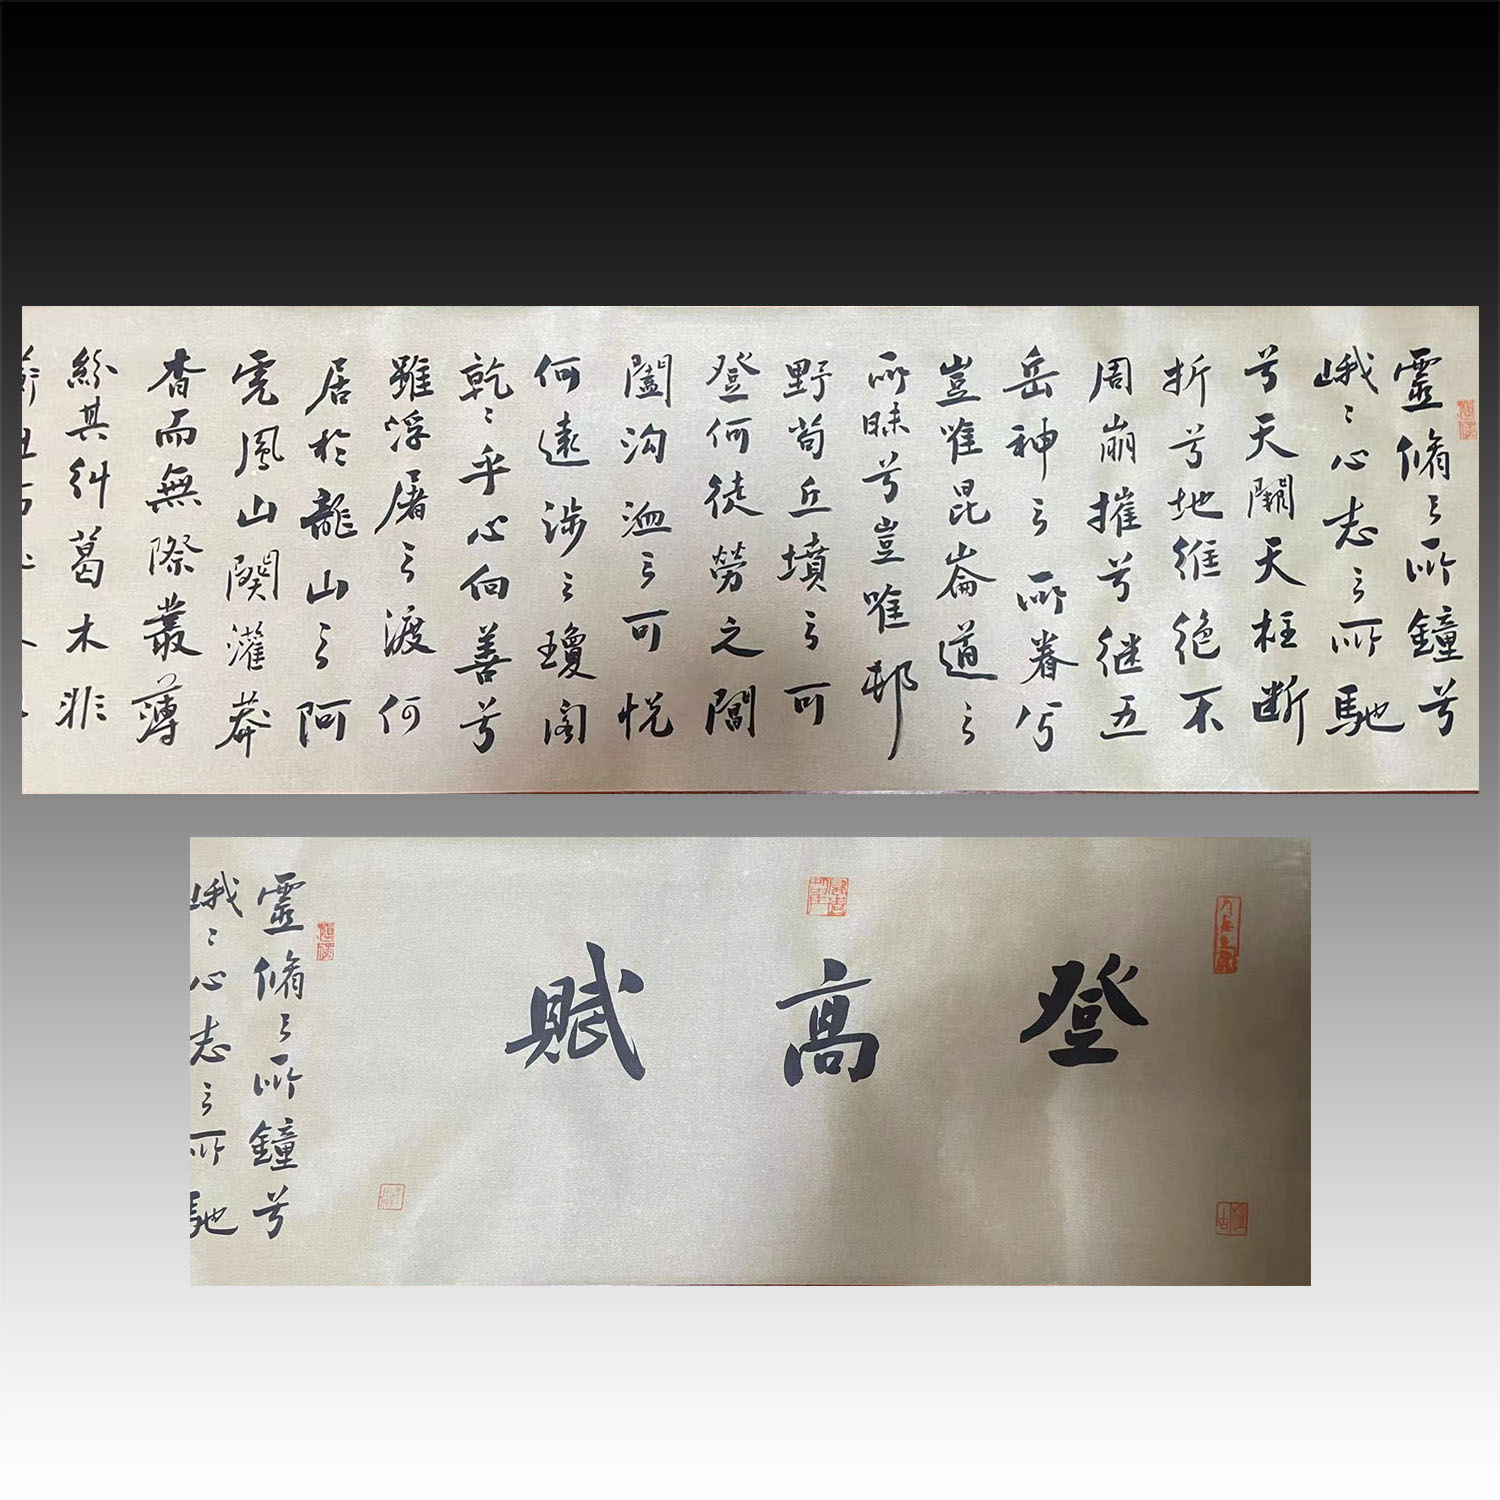 靈脩之所鐘兮
峨〻心志之所馳
兮天關天柱斷
折兮地維絕不
周崩摧兮継五
岳神之所眷兮
豈唯昆崙道之
所昧兮豈唯邨
野苟丘墳之可
登何徒勞之閬
闔沟洫之可悦
何遠涉之瓊阁
乾〻乎心向善兮
雖浮屠之渡何
居於龍山之阿
凭鳳山闋灌莽
杳而無際叢薄
紛其糾葛木非
登高賦
靈脩之所鐘兮
峨〻心志之所馳